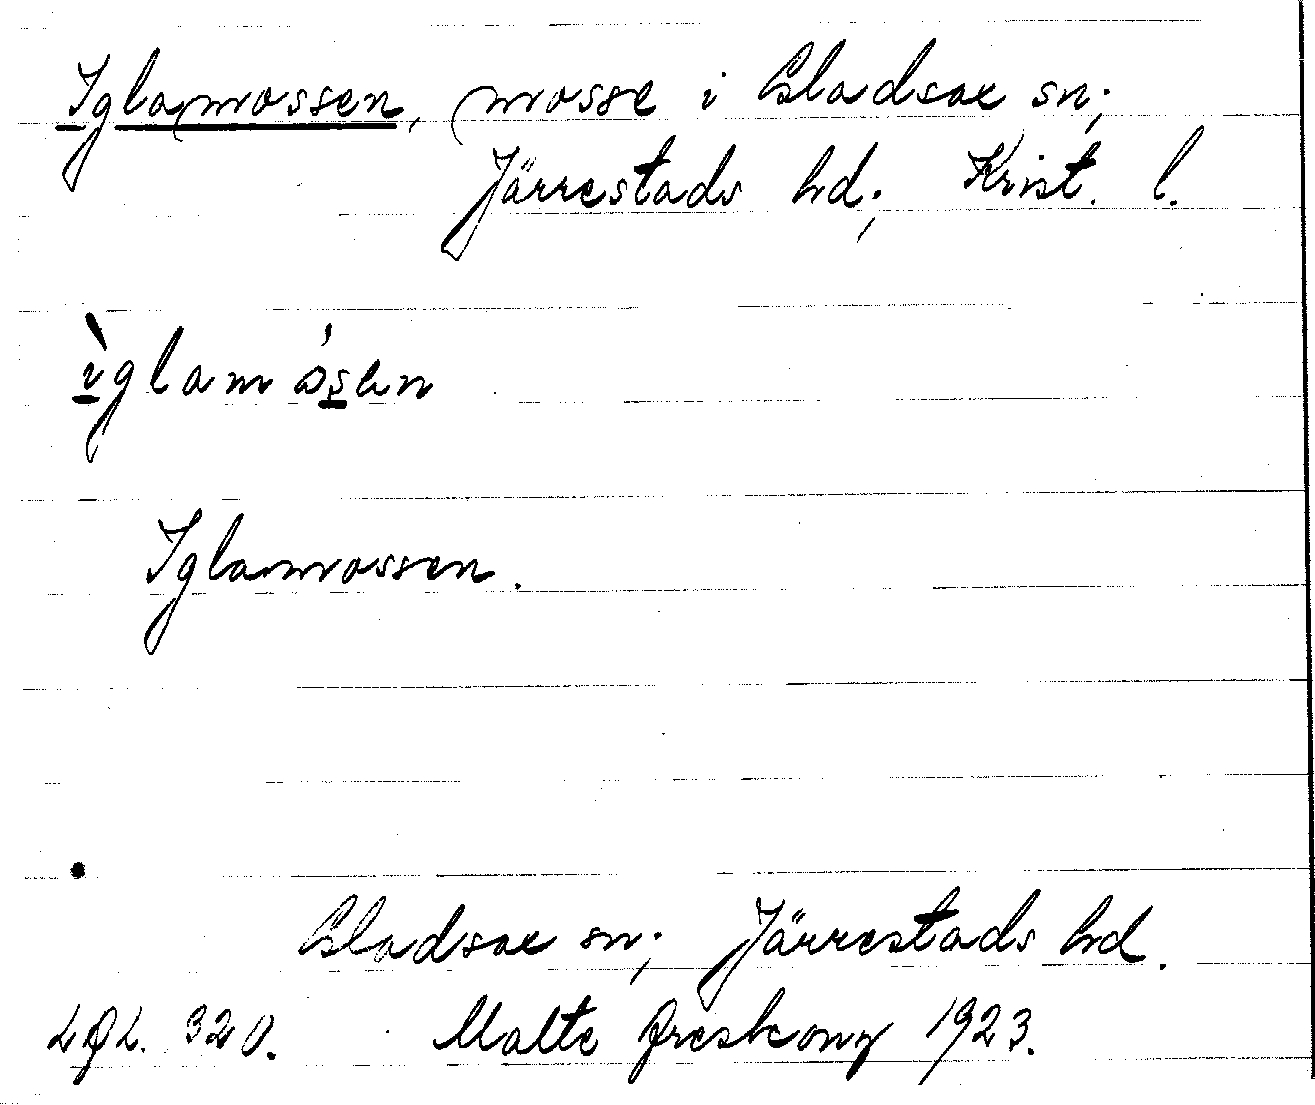 Iglamossen, mosse i Gladsax sn;
Järrestads hd; Krist. l.
ìglamósen
Iglamossen.
Gladsax sn; Järrestads hd.
320. Malte 1923.